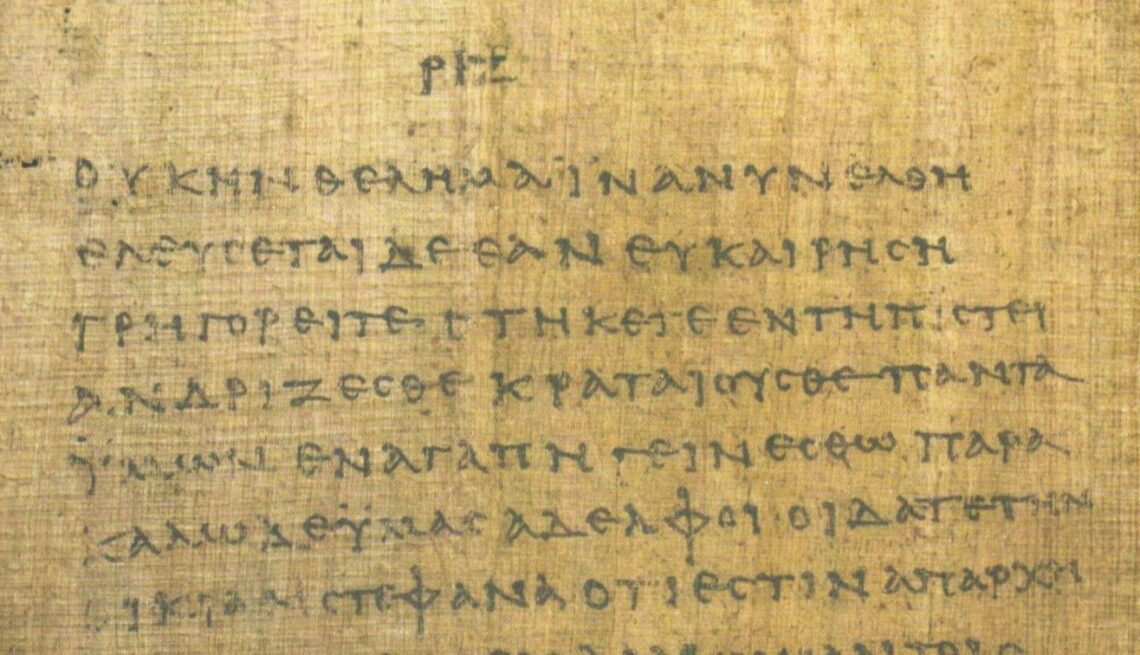 ΡΙΖ
ΟΥΚ ΗΝ ΘΕΛΗΜΑ ΪΝΑ ΝΥΝ ΕΛΘΗ
ΕΛΕΥϹΕΤΑΙ ΔΕ ΕΑΝ ΕΥΚΑΙΡΗϹΗ
ΓΡΗΓΟΡΕΙΤΕ ϹΤΗΚΕΤΕ ΕΝ ΤΗ ΠΙϹΤΕΙ
ΑΝΔΡΙΖΕϹΘΕ ΚΡΑΤΑΙΟΥϹΘΕ ΠΑΝΤΑ
ΫΜΩΝ ΕΝ ΑΓΑΠΗ ΓΕΙΝΕϹΘΩ ΠΑΡΑ
ΚΑΛΩ ΔΕ ΫΜΑϹ ΑΔΕΛΦΟΙ ΟΙΔΑΤΕ ΤΗΝ
ΟΙΚΙΑΝ ϹΤΕΦΑΝΑ ΟΤΙ ΕϹΤΙΝ ΑΠΑΡΧΗ